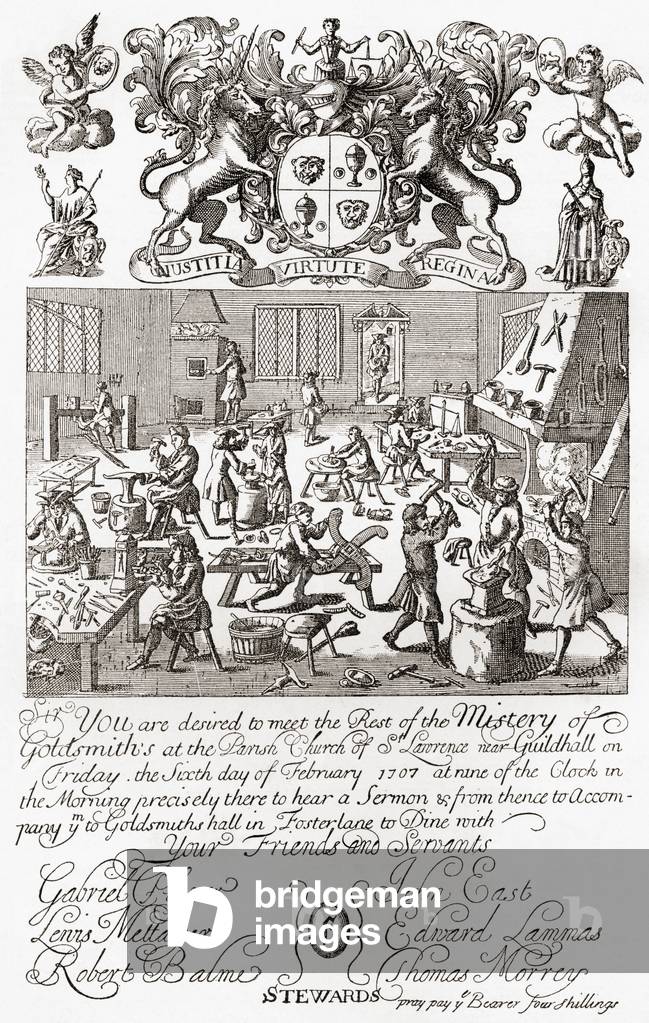 JUSTITIA VIRTUTE REGINA
Sir YOU are desired to meet the Rest of the Mistery of
Goldsmith's at the Parish Church of St Lawrence near Guildhall on
Friday. the Sixth day of February 1707 at nine of the Clock in
the Morning precisely there to hear a Sermon & from thence to Accom-
pany ym to Goldsmiths hall in Foster lane to Dine with
Your Friends and Servants
Gabriel East
Lewis Edward Lammas
Robert Balme Thomas Morrey
STEWARDS pray pay ye Bearer four shillings
b
bridgeman
images